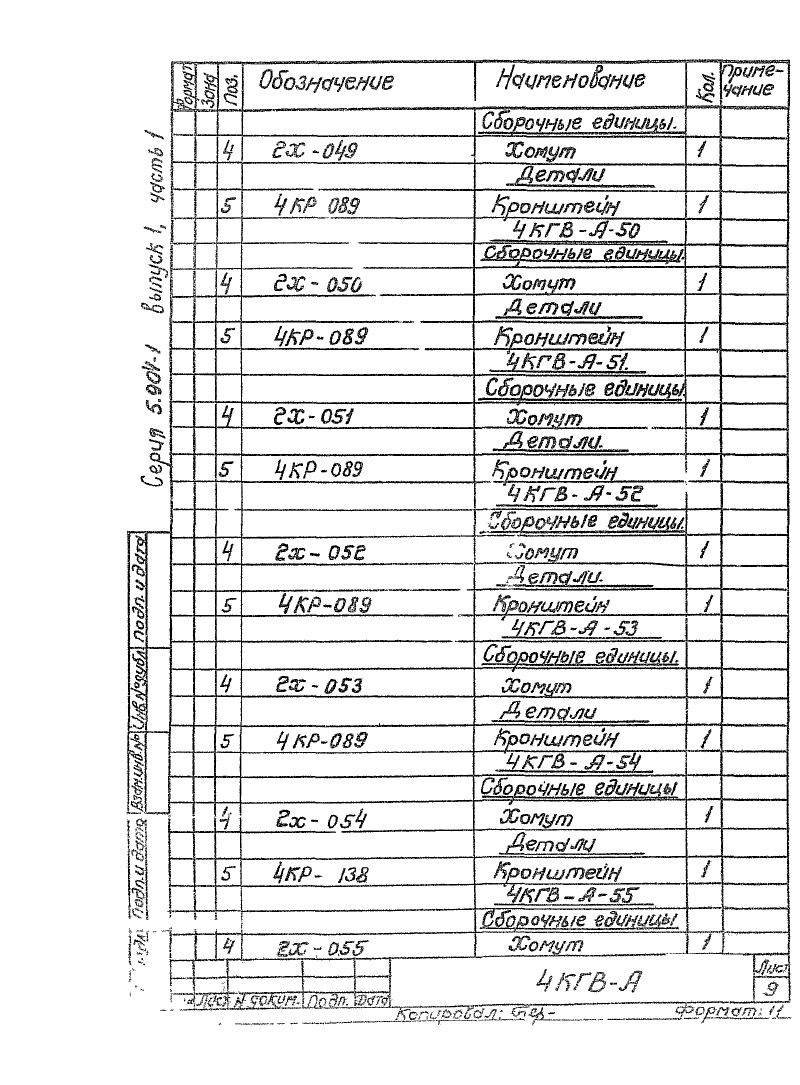 Формат Зона Поз. Обозначение Наименование Кол. Приме-
чание
Сборочные единицы.
4 2Х-049 Хомут 1
Детали
5 4КР 089 Кронштейн 1
4КГВ-А-50
Сборочные единицы.
4 2Х-050 Хомут 1
Детали
5 4КР-089 Кронштейн 1
4КГВ-А-51.
Сборочные единицы
4 2Х-051 Хомут 1
Детали.
5 4КР-089 Кронштейн 1
4КГВ-А-52
Сборочные единицы.
4 2х-052 Хомут 1
Детали.
5 4КР-089 Кронштейн 1
4КГВ-А-53
Сборочные единицы.
4 2х-053 Хомут 1
Детали
5 4КР-089 Кронштейн 1
4КГВ-А-54
Сборочные единицы
4 2х-054 Хомут 1
Детали
5 4КР-138 Кронштейн 1
4КГВ-А-55
Сборочные единицы
4 2х-055 Хомут 1
4КГВ-А
Лист
9
Лист N докум. Подп. Дата
Копировал:
Формат: 11
Серия 5.904-1 выпуск 1, часть 1
Подп. и дата
Инв.№ дубл.
Взам.инв.№
Подп. и дата